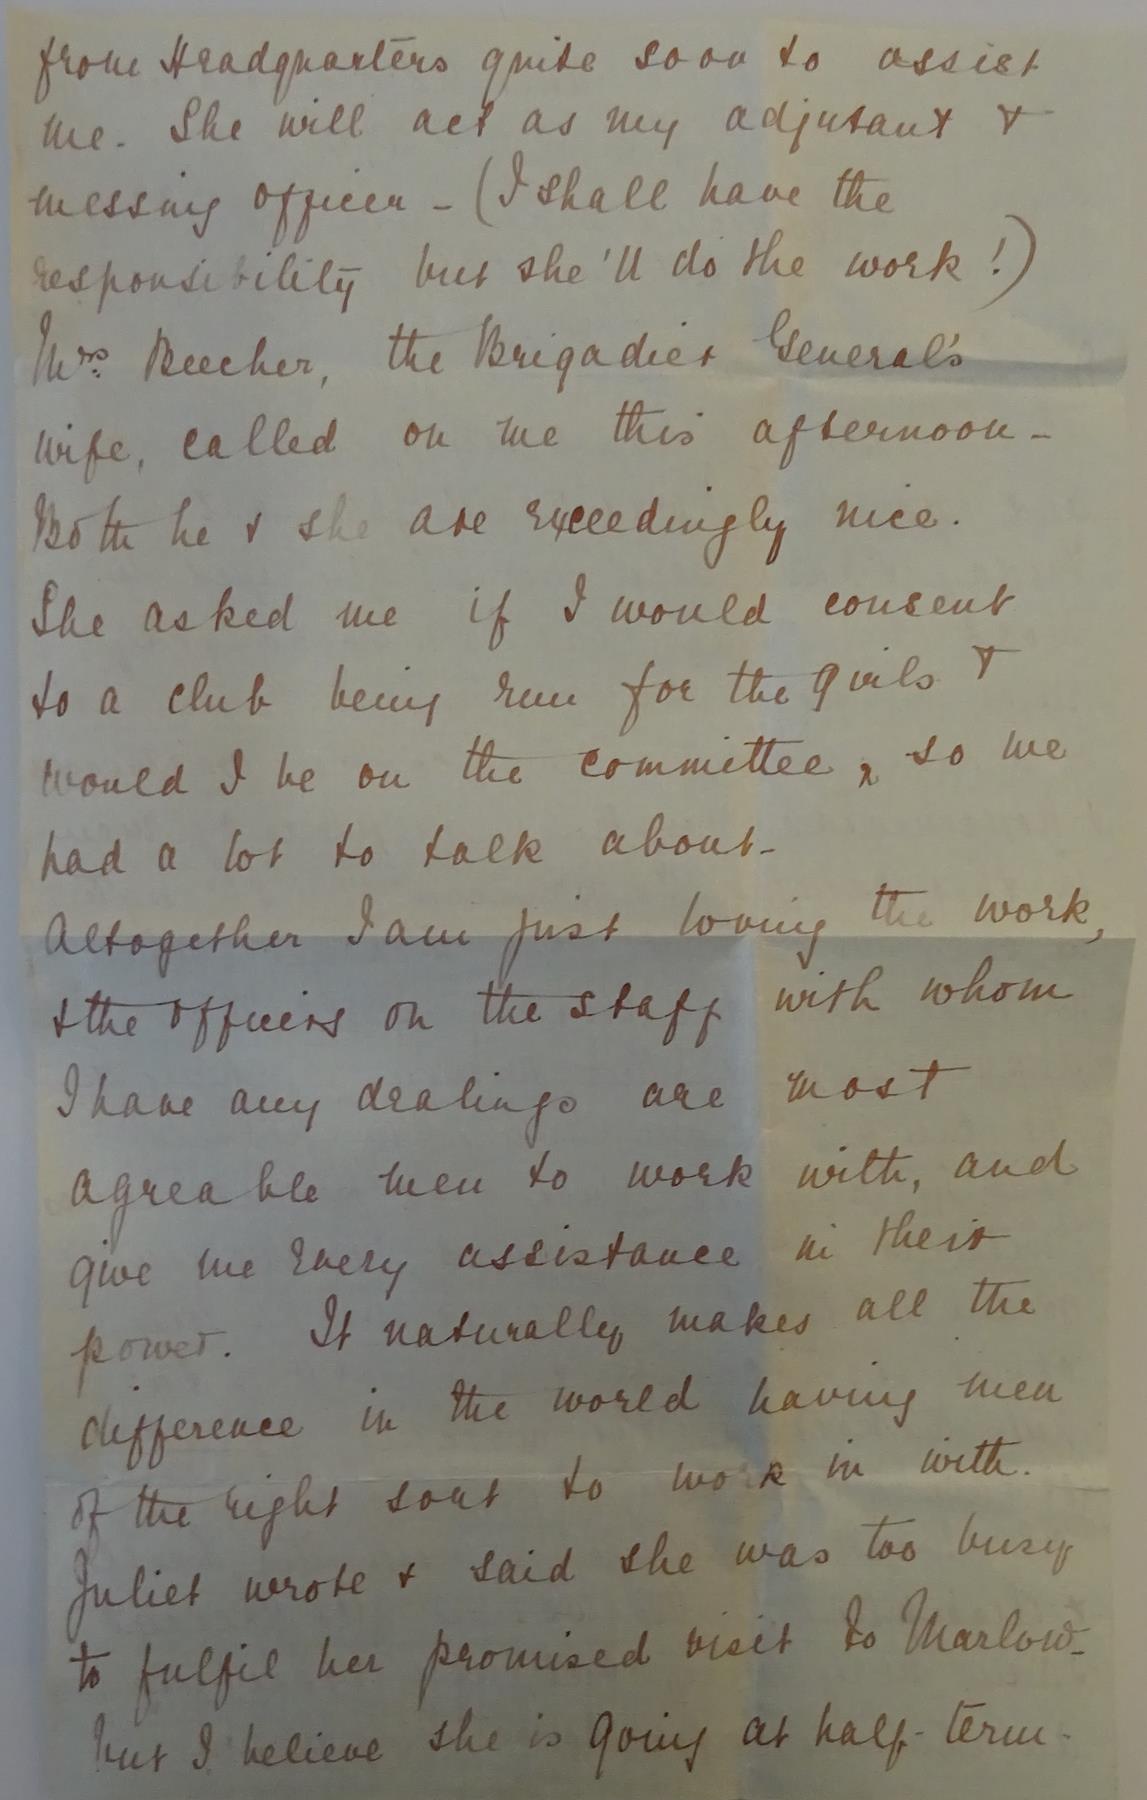 from Headquarters quite soon to assist
me. She will act as my adjutant &
messing officer - (I shall have the
responsibility but she'll do the work!)
Mrs. Beecher, the Brigadier General's
wife, called on me this afternoon -
Both he & she are exceedingly nice.
She asked me if I would consent
to a club being run for the girls &
would I be on the committee, so we
had a lot to talk about -
Altogether I am just loving the work,
& the officers on the staff with whom
I have any dealings are most
agreable men to work with, and
give me every assistance in their
power. It naturally makes all the
difference in the world having men
of the right sort to work in with.
Juliet wrote & said she was too busy
to fulfil her promised visit to Marlow -
but I believe she is going at half-term -